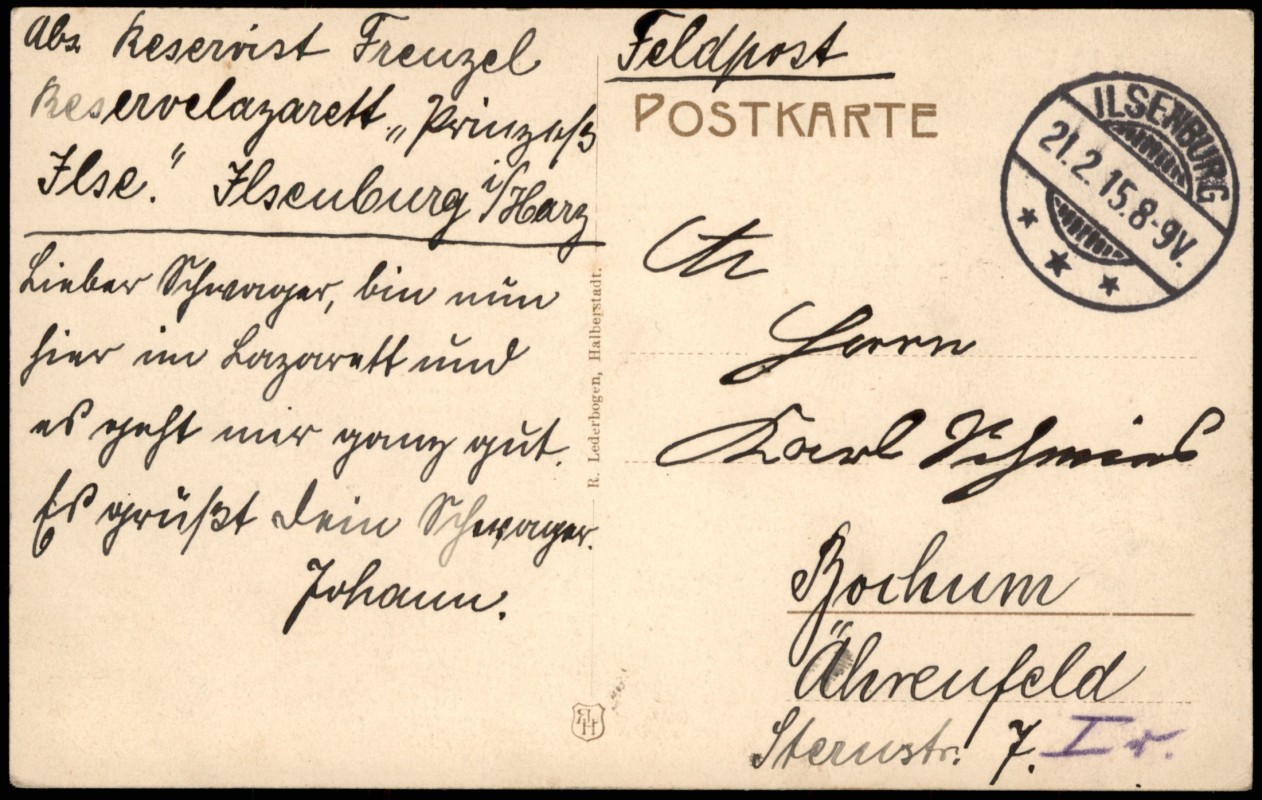 Abs. Reservist Frenzel
Reservelazarett „Prinzeß
Ilse." Ilsenburg i/Harz
Lieber Schwager, bin nun
hier im Lazarett und
es geht mir ganz gut.
Es grüßt Dein Schwager.
Johann.
R. Lederbogen, Halberstadt.
RLH
Feldpost
POSTKARTE
ILSENBURG
21.2.15.8-9V.
An
Herrn
Karl
Bochum
Ährenfeld
Sternstr. 7. I r.